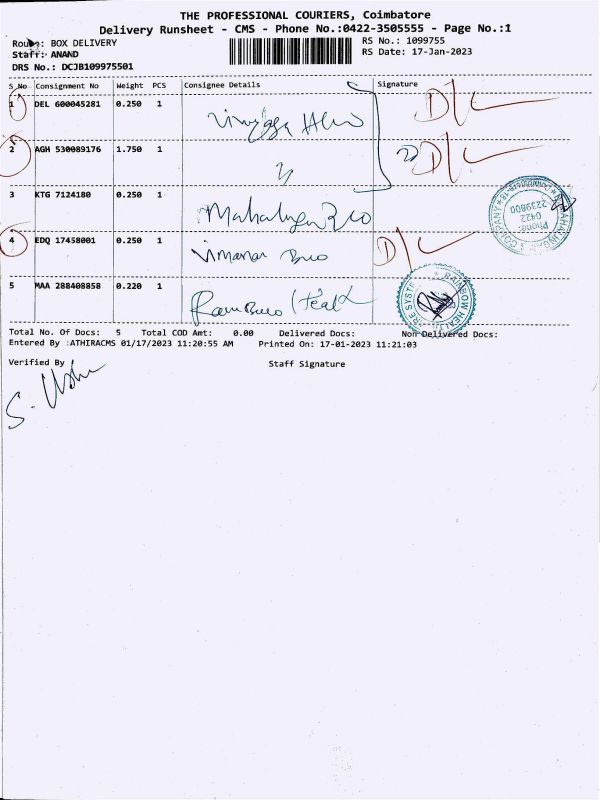 THE PROFESSIONAL COURIERS, Coimbatore
Delivery Runsheet - CMS - Phone No.:0422-3505555 - Page No.:1
Route: BOX DELIVERY
RS No.: 1099755
Staff: ANAND
RS Date: 17-Jan-2023
DRS No.: DCJB109975501
S.No Consignment No Weight PCS Consignee Details Signature
1 DEL 600045281 0.250 1 D/C
2 AGH 530089176 1.750 1 D/C
3 KTG 7124180 0.250 1
COMPANY Phone: 0422 2239800
4 EDQ 17458001 0.250 1 D/C
5 MAA 288408858 0.220 1
RAINBOW
Total No. Of Docs: 5 Total COD Amt: 0.00 Delivered Docs: Non Delivered Docs:
Entered By :ATHIRACMS 01/17/2023 11:20:55 AM Printed On: 17-01-2023 11:21:03
Verified By Staff Signature